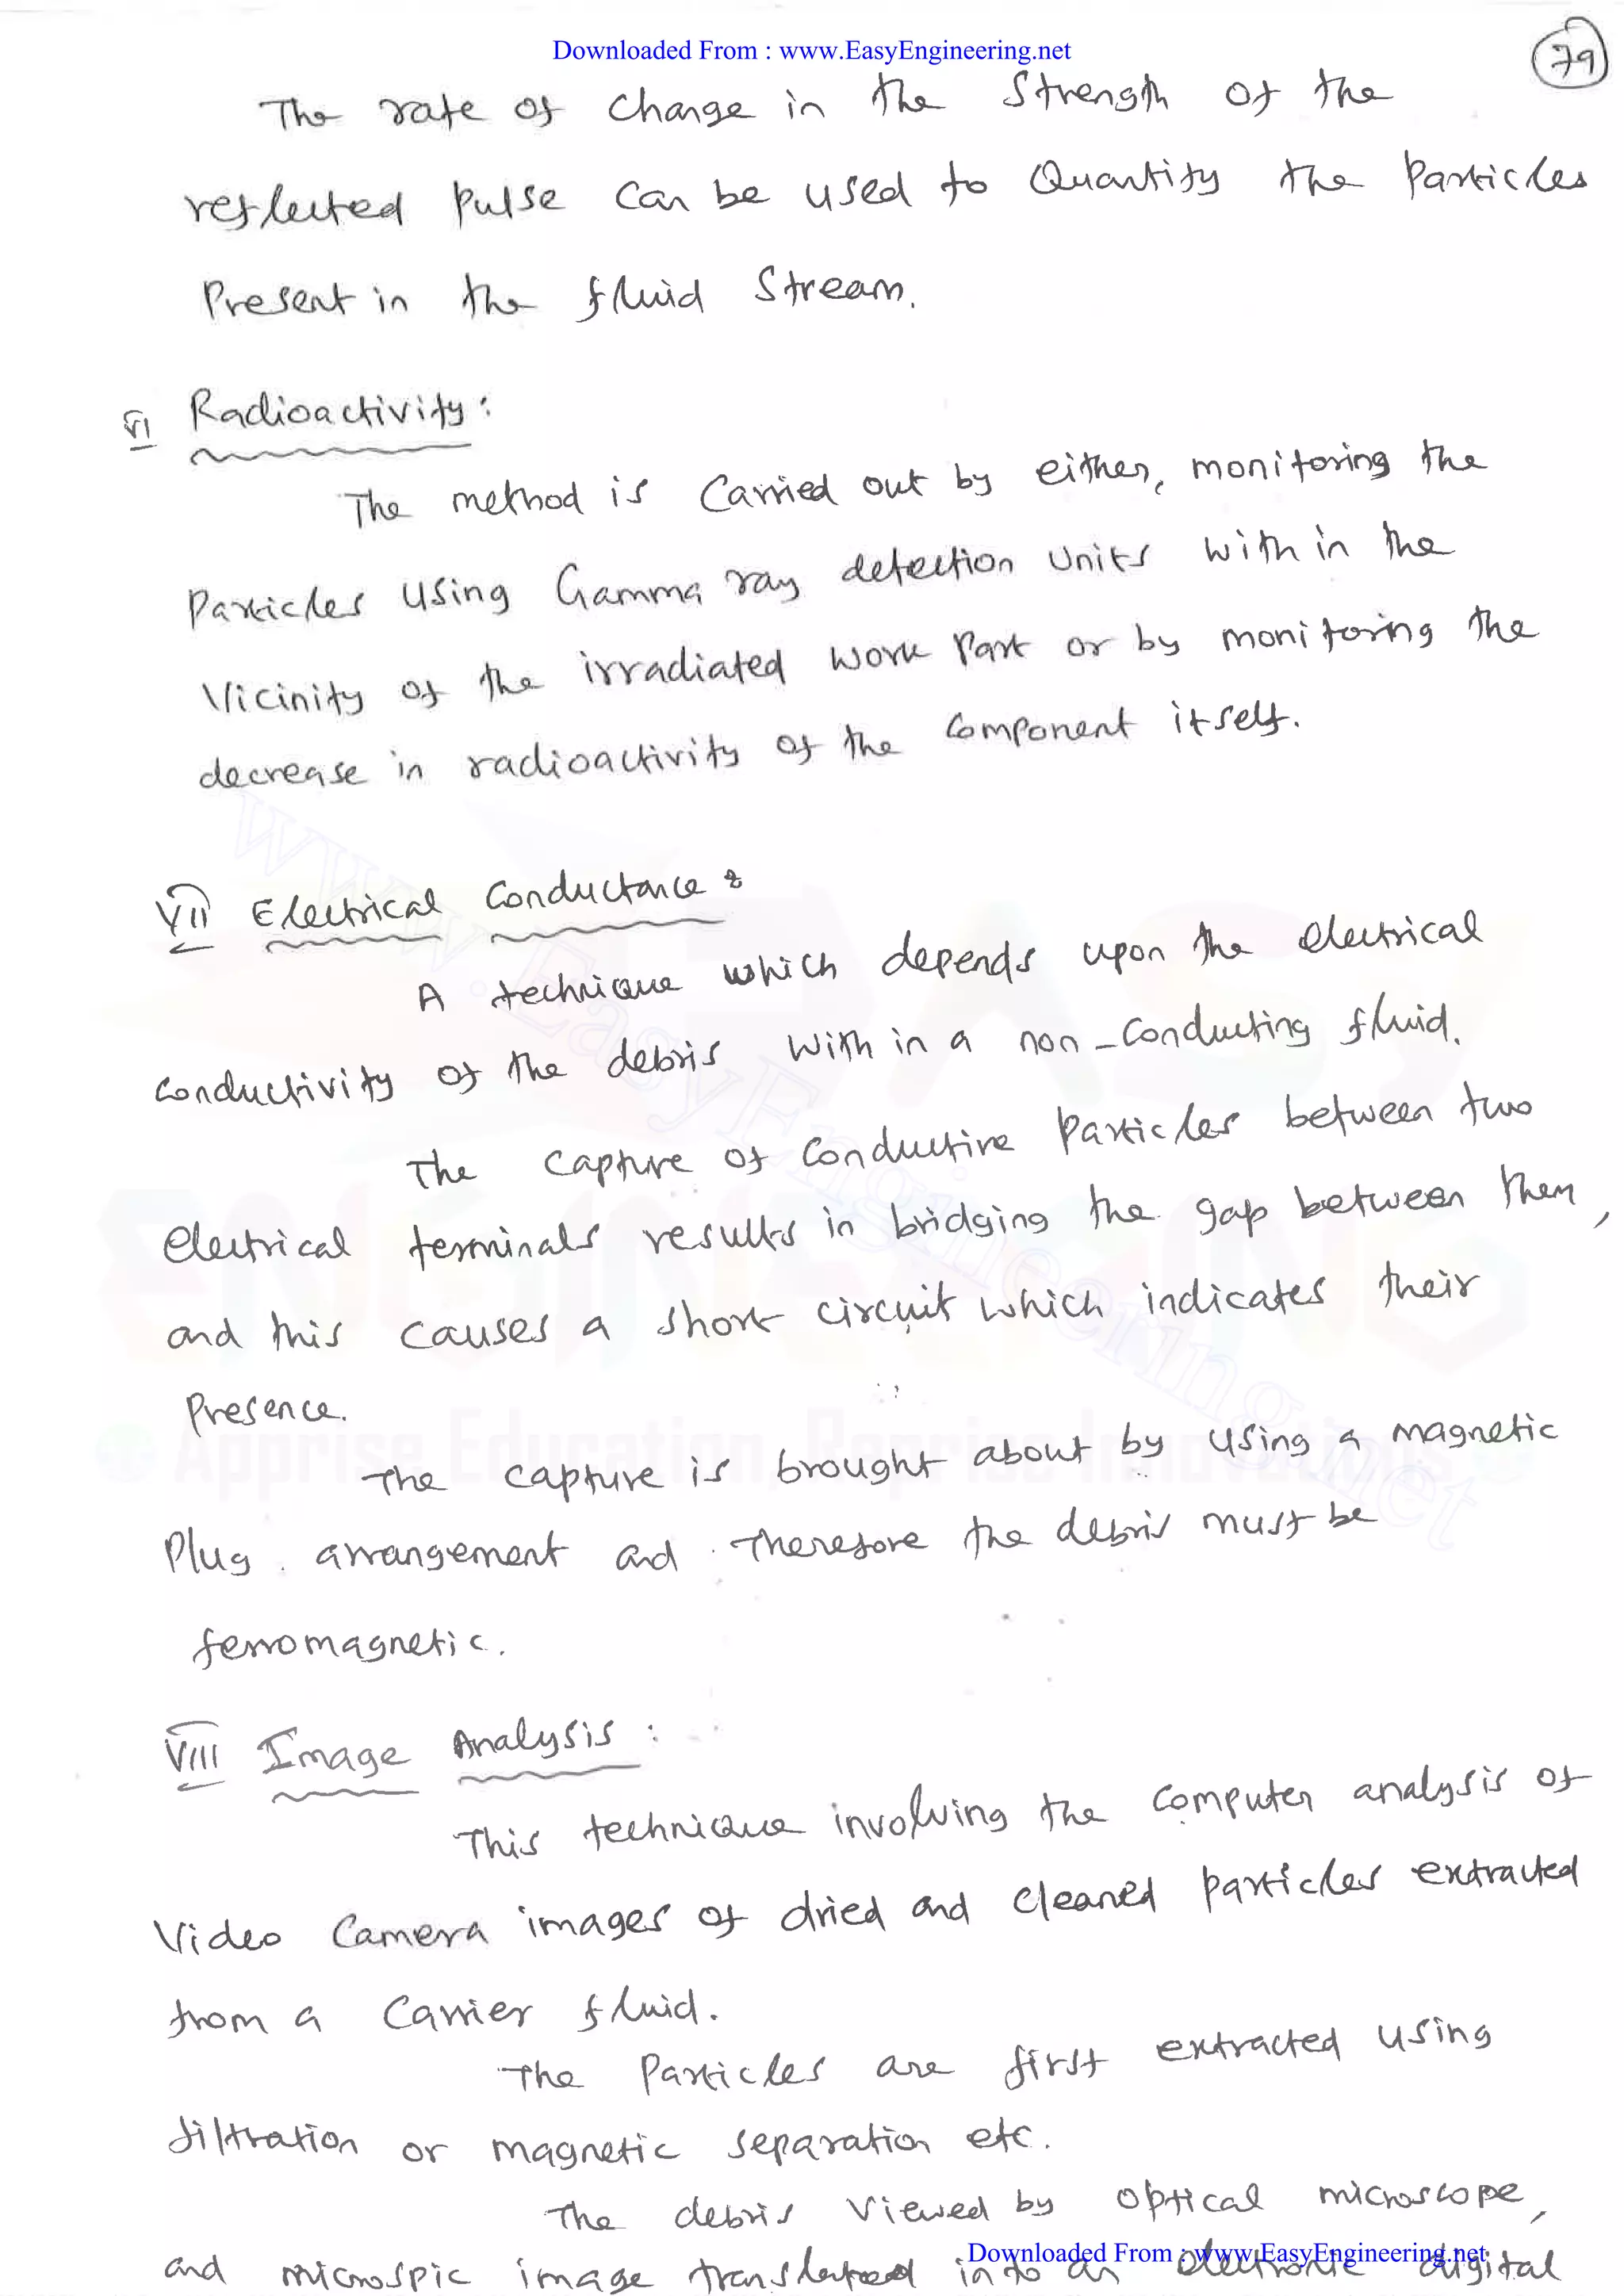 Downloaded From : www.EasyEngineering.net
79
The rate of change in the Strength of the
reflected pulse can be used to Quantity the particles
Present in the fluid Stream.
VI Radioactivity :
The method is Carried out by either, monitoring the
Particles using Gamma ray detection Units with in the
Vicinity of the irradiated work part or by monitoring the
decrease in radioactivity of the Component itself.
VII Electrical Conductance :
A technique which depends upon the electrical
Conductivity of the debris with in a non-Conducting fluid.
The Capture of Conductive particles between two
electrical terminals results in bridging the gap between them,
and this causes a short circuit which indicates their
Presence.
The capture is brought about by using a magnetic
Plug arrangement and Therefore the debris must be
ferromagnetic.
VIII Image Analysis :
This technique involving the Computer analysis of
Video Camera images of dried and cleaned particles extracted
from a Carrier fluid.
The Particles are first extracted using
filtration or magnetic separation etc.
The debris Viewed by optical microscope,
and microspic image translated into an electronic digital
Downloaded From : www.EasyEngineering.net
www.EasyEngineering.net
EASY
ENGINEERING
Apprise Education, Reprise Innovations